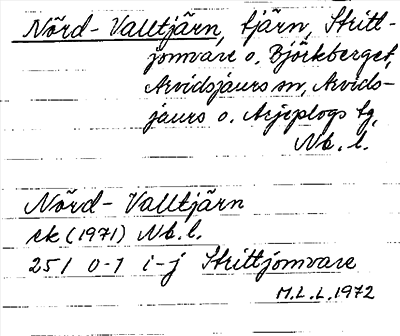 Nörd-Valltjärn, tjärn, Stritt-
jomvare o. Björkberget,
Arvidsjaurs sn, Arvids-
jaurs o. Arjeplogs tg,
Nb. l.
Nörd-Valltjärn
ek (1971) Nb. l.
25 I 0-1 i-j Strittjomvare
M.L.L. 1972